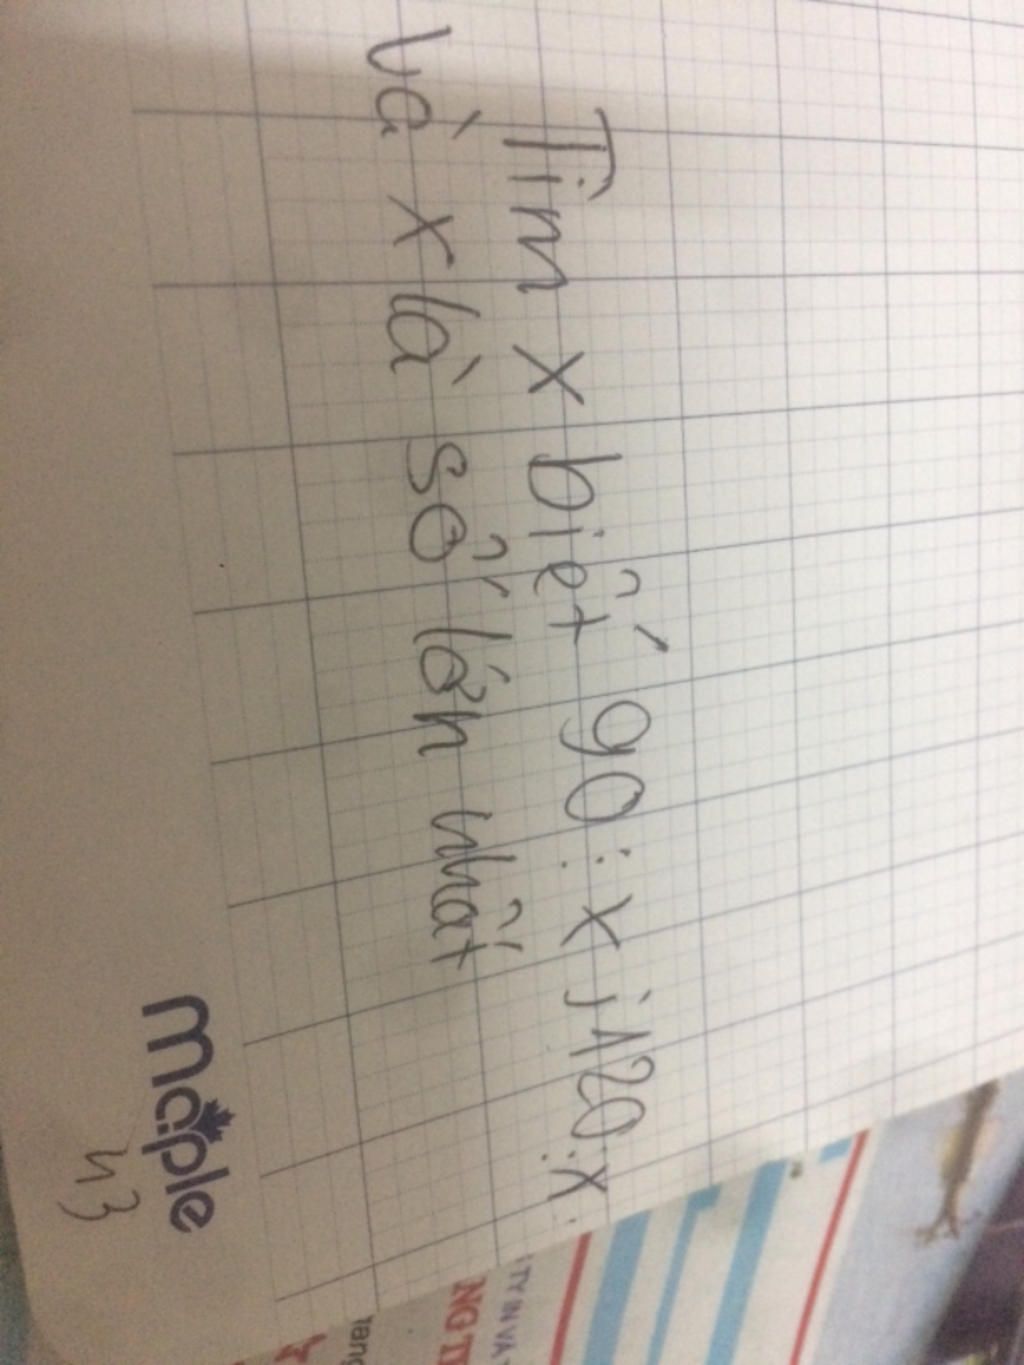 Tìm x biết 90 : x ; 120 : x
và x là số lớn nhất
maple
43
TY IN VA
NG T